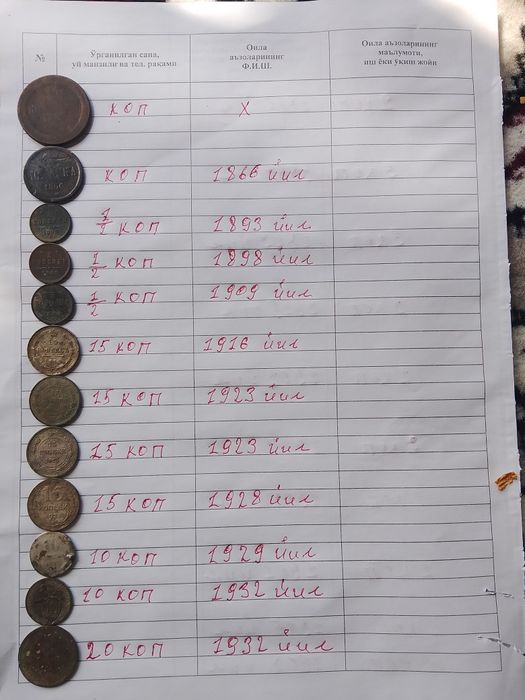 № Ўрганилган сана, уй манзили ва тел. раками Оила аъзоларининг Ф.И.Ш. Оила аъзоларининг маълумоти, иш ёки ўкиш жойи
коп х
коп 1866 йил
1/2 коп 1893 йил
1/2 коп 1898 йил
1/2 коп 1909 йил
15 коп 1916 йил
15 коп 1923 йил
15 коп 1923 йил
15 коп 1928 йил
10 коп 1929 йил
10 коп 1932 йил
20 коп 1932 йил